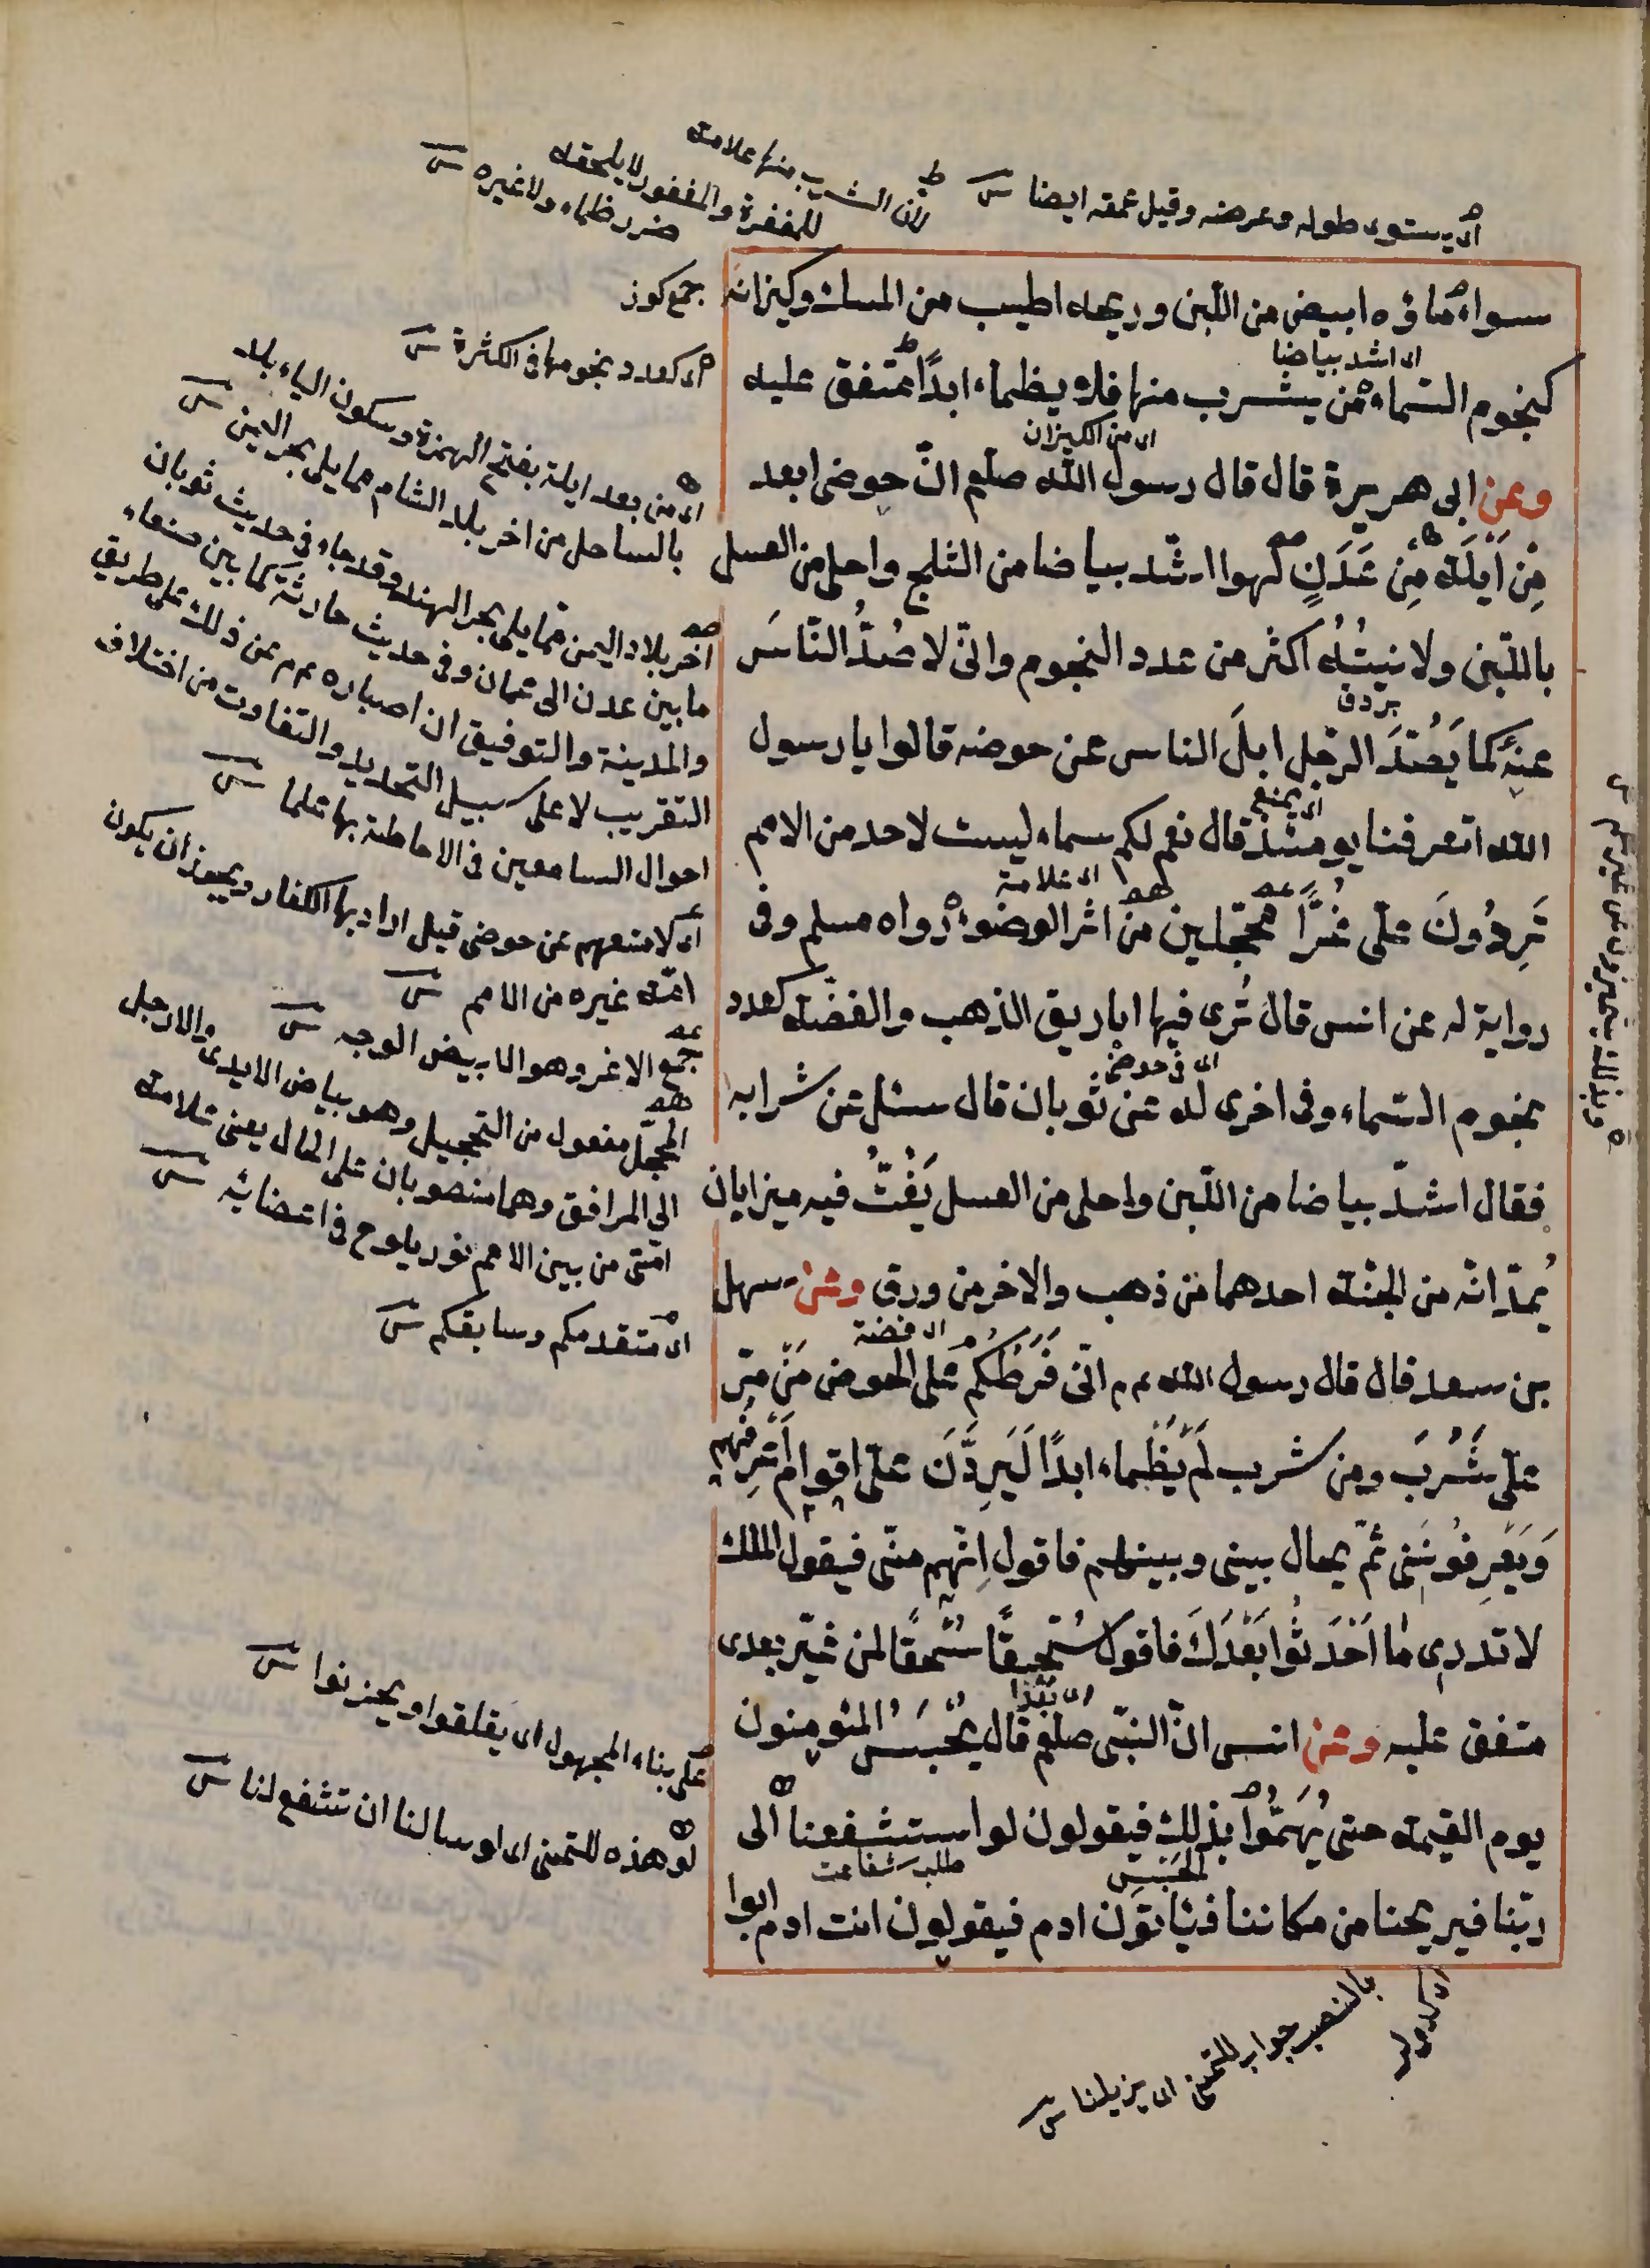 اى يستوى طوله وعرضه وقيل عمقه ايضا
لان الشرب منها علامته
للمغفرة والمغفور لا يلحقه
ضرر ظماء ولا غيره
سواء ماؤه ابيض من اللّبن وريحه اطيب من المسك وكيزانه
جمع كوز
اى اشد بياضا
كنجوم السّماء من يشرب منها فلا يظماء ابدًا متفق عليه
اى كعدد نجومها فى الكثرة
اى من الكيزان
وعن ابى هريرة قال قال رسول الله صلعم انّ حوضى ابعد
مِن اَيلَة مِن عَدَنٍ لهوا اشّد بياضا من الثلج واحلى من العسل
باللّبن ولانيتُهُ اكثر من عدد النجوم وانّى لاصُدُّ النّاسَ
عنهُ كما يَصُدَّ الرّجل ابلَ الناس عن حوضه قالوا يا رسول
اى يمنع
الله اتعرفنا يومئذ قال نعم لكم سماء ليست لاحد من الامم
اى علامة
تَرِدُونَ علىّ غُرًّا محجّلين من اثر الوضوء رواه مسلم وفى
رواية له عن انس قال تُرى فيها اباريق الذهب والفضّة كعدد
اى فى حوضى
نجوم السّماء وفى اخرى له عن ثوبان قال سئل عن شرابه
فقال اشدّ بياضا من اللّبن واحلى من العسل يَغُتُّ فيه ميزابان
يُمدّانه من الجنّة احدهما من ذهب والاخر من ورق وعن سهل
اى فضة
بن سعد قال قال رسول الله عم انّى فَرَطُكُم على الحوض مَنْ مرّ
علىّ شَرِبَ ومن شرب لَمْ يَظْماء ابدًا لَيَرِدَّنَ علىّ اقوام اَعْرِفُهُم
وَيَعْرِفُونَنى ثمّ يحال بينى وبينهم فاقول اِنّهم منّى فيقول الملك
لا تدرى مٰا اَحْدَثُوا بَعْدَكَ فاقول سُحقًا سُحقًا لمن غيّر بعدى
اى بُعْدًا
متفق عليه وعن انس انّ النبّى صلعم قال يُحْبَسُ المؤمنون
يوم القيمة حتى يُهَمُّوا بذلك فيقولون لو استشفعنا الى
الحبس
طلب شفاعت
ربّنا فيريحنا من مكاننا فيَاتون ادم فيقولون انت ادم ابوا
اى من بعد ايلة بفتح الهمزة وسكون الياء بلد
بالساحل من اخر بلد الشام مما يلى بحر اليمن
اخر بلاد اليمن مما يلى بحر الهند وقد جاء فى حديث ثوبان
ما بين عدن الى عمان وفى حديث حارثة كما بين صنعاء
والمدينة والتوفيق ان اخباره عم عن ذلك على طريق
التقريب لا على سبيل التحديد والتفاوت من اختلاف
احوال السامعين فى الاحاطة بها علما
اى لامنعهم عن حوضى قيل اراد بها الكفار ويجوز ان يكون
امّة غيره من الامم
جمع الاغر وهو الابيض الوجه
المحجّل مفعول من التحجيل وهو بياض الايدى والارجل
الى المرافق وهما منصوبان على الحال يعنى علامته
امّتى من بين الامم نور يلوح فى اعضائه
اى متقدمكم وسابقكم
على بناء المجهول اى يقلقوا ويحزنوا
لو هذه للتمنى اى لو سالنا ان تشفع لنا
بالنصب جواب للتمنى اى يزيلنا